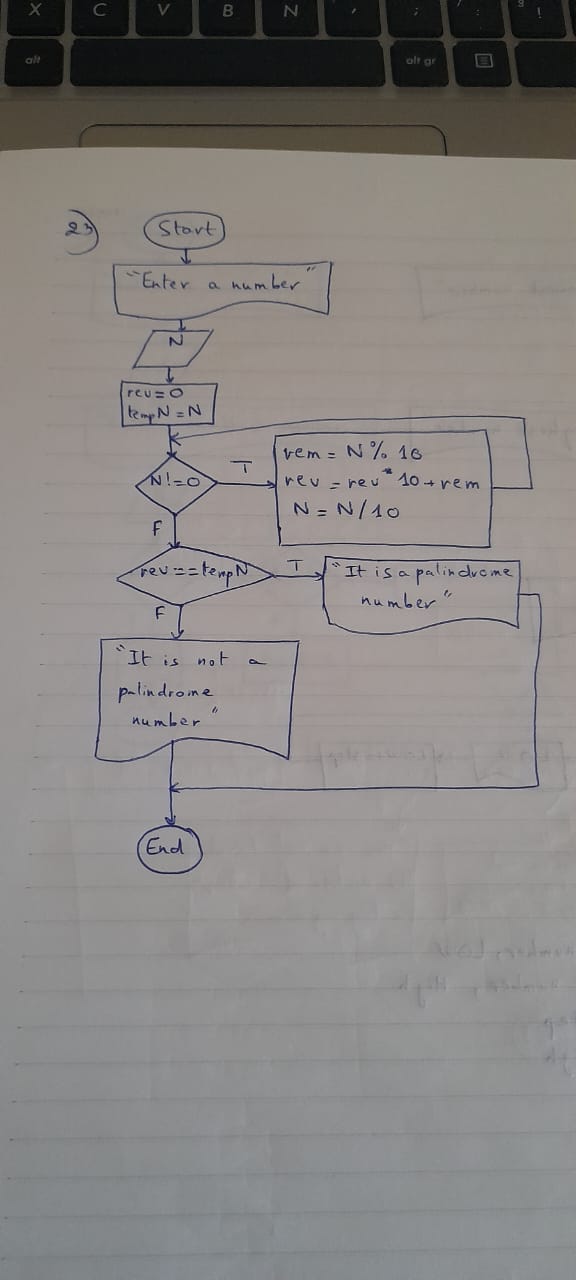 X C V B N , ; : !
alt alt gr
23
Start
"Enter a number"
N
rev=0
tempN=N
N!=0
T
rem = N % 10
rev = rev * 10 + rem
N = N/10
F
rev==tempN
T
"It is a palindrome
number"
F
"It is not a
palindrome
number"
End